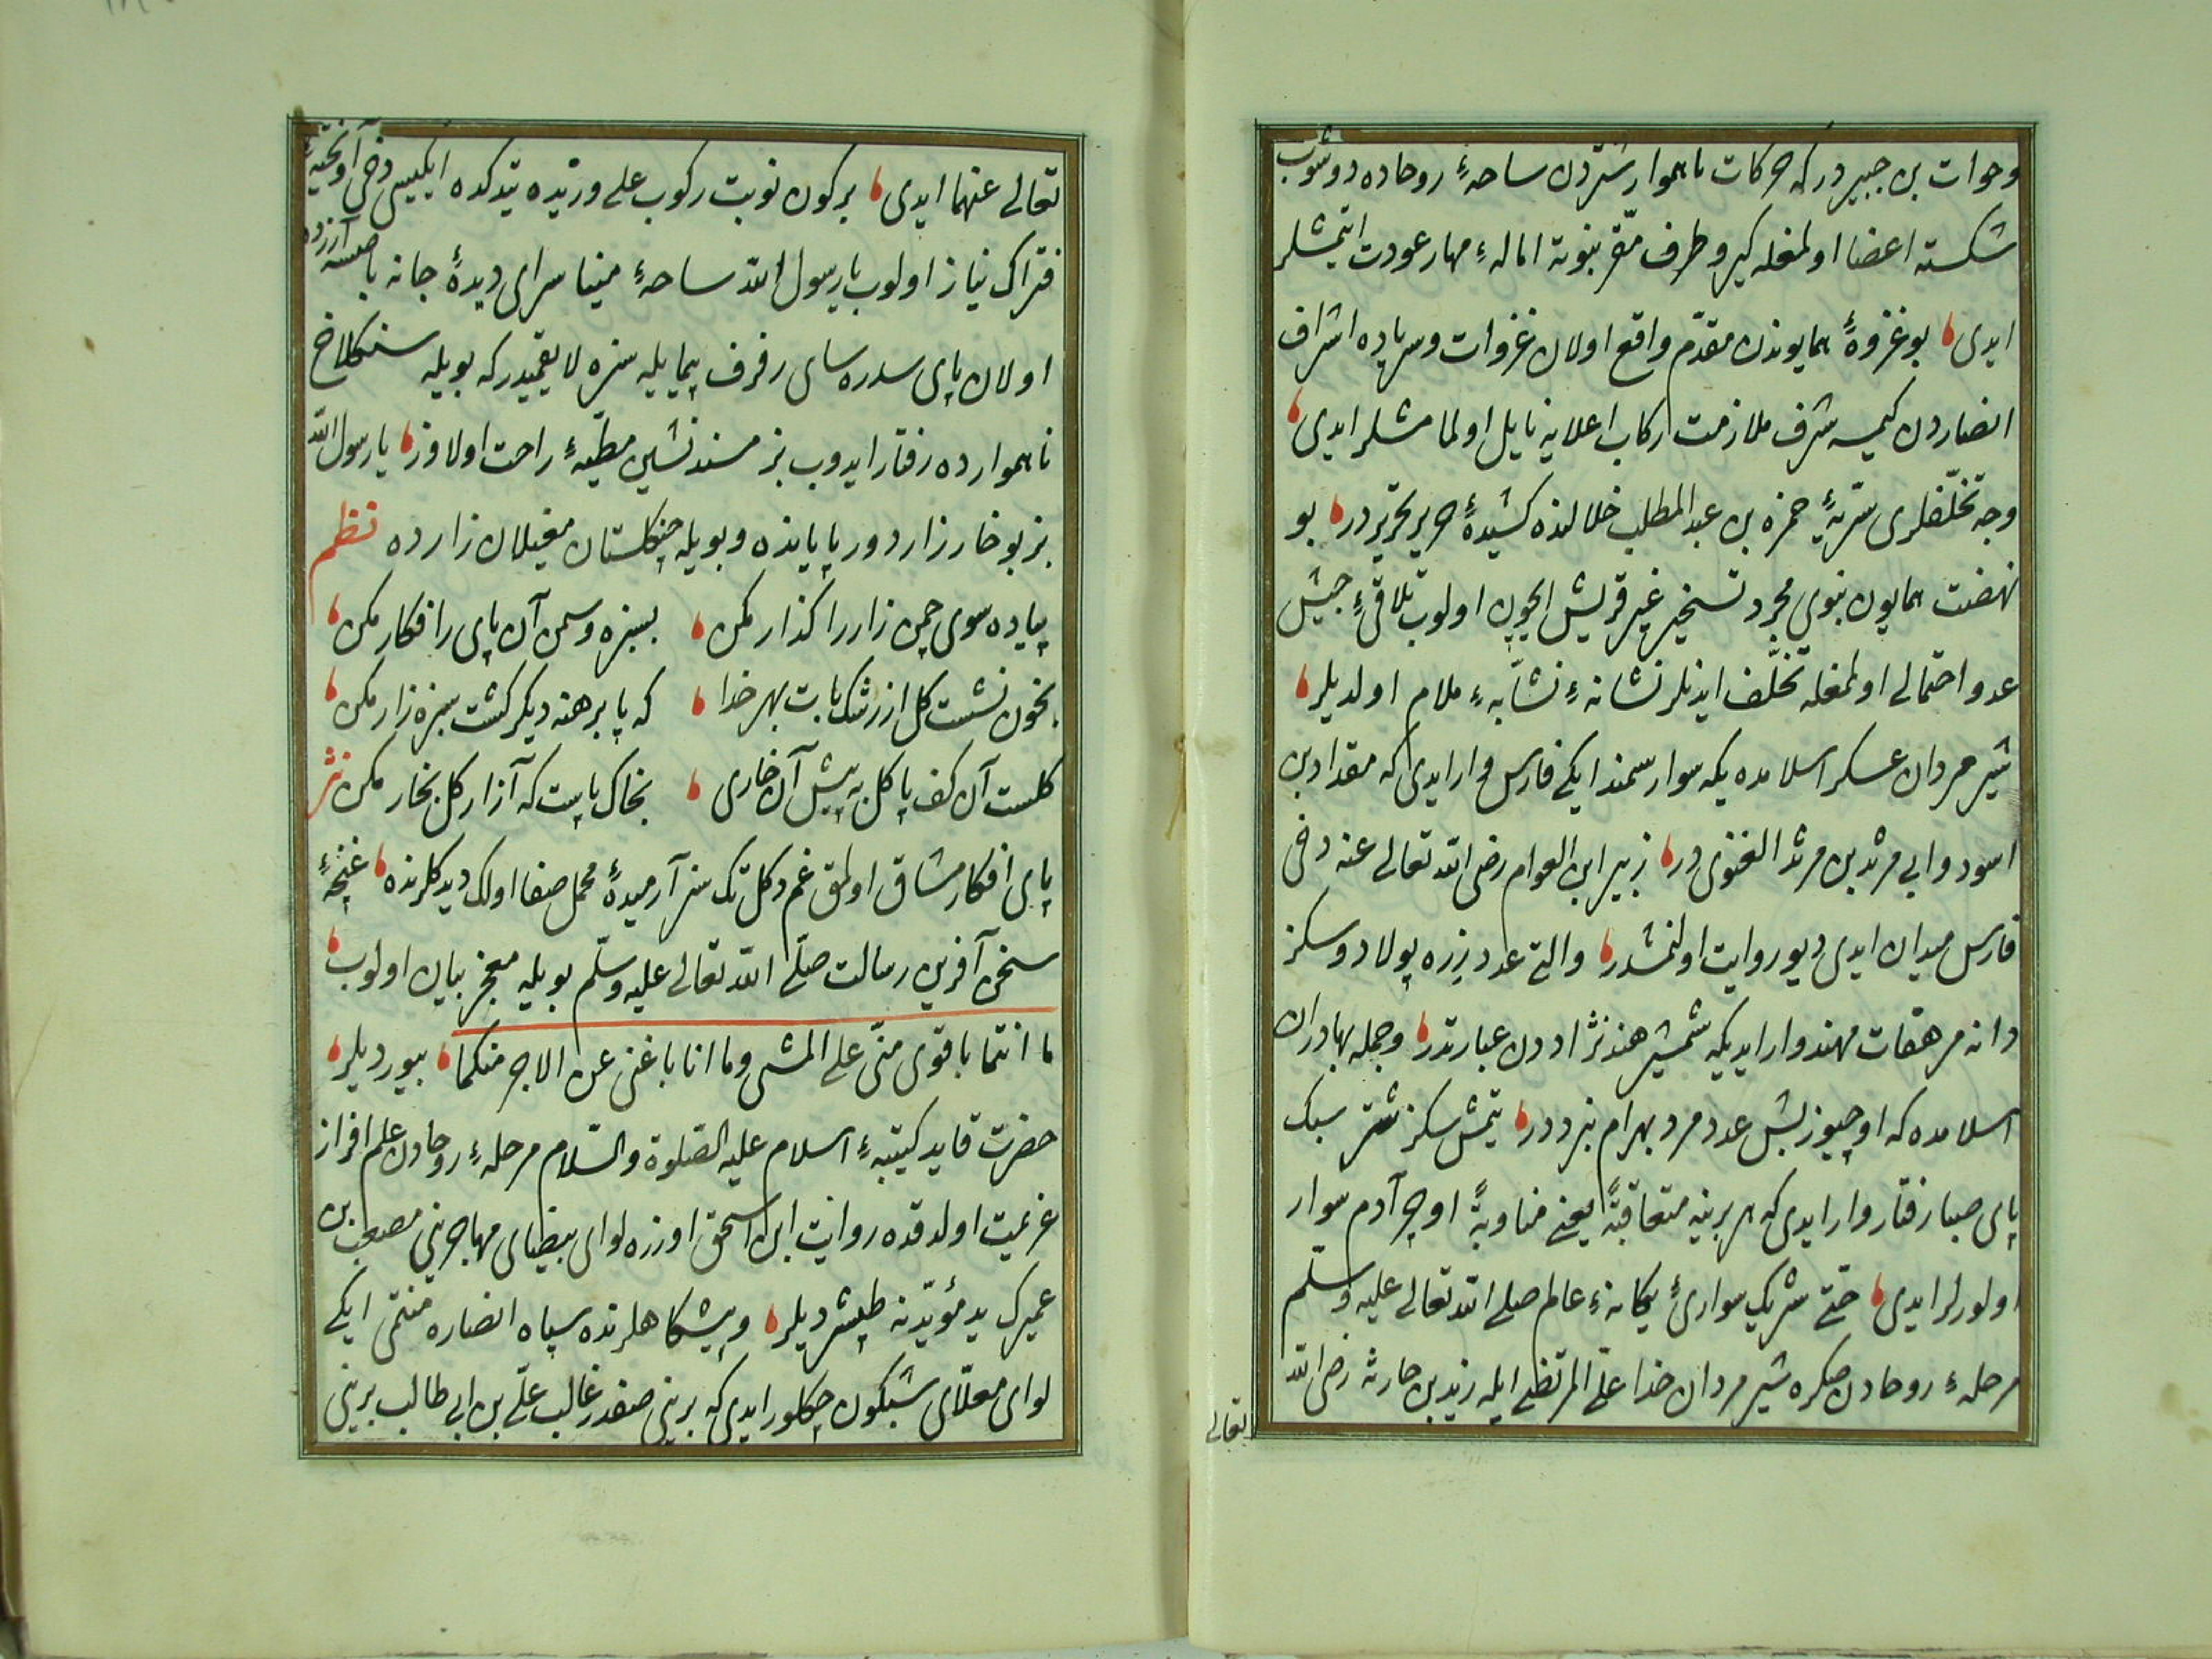 وخوات بن جبیر در که حرکات ناهموار شتردن ساحهٔ روحاده دوشوب
شکسته اعضا اولمغله کیرو طرف مقر نبوته امالهٔ مهار عودت ایتمشلر
ایدی بو غزوهٔ همایوندن مقدّم واقع اولان غزوات وسرایاده اشراف
انصاردن کیمسه شرف ملازمت رکاب اعلایه نایل اولمامشلر ایدی
وجه تخلّفلری سریّهٔ حمزه بن عبد المطلب خلالنده کشیدهٔ حریر تحریر در بو
نهضت همایون نبوی مجرد تسخیر عیر قریش ایچون اولوب تلاقیٔ جیش
عدو احتمالی اولمغله تخلّف ایدنلر نشانهٔ نشّابهٔ ملام اولدیلر
شیر مردان عسکر اسلامده یکه سوار سمند ایکی فارس وار ایدی که مقداد بن
اسود وابی مرثد بن مرثد الغنوی در زبیر ابن العوام رضی الله تعالی عنه دخی
فارس میدان ایدی دیو روایت اولنمشدر والتی عدد زره پولاد وسکز
دانه مرهفات مهند وار ایدیکه شمشیر هند نژاددن عبارتدر وجمله بهادران
اسلامده که اوچیوز بش عدد مرد بهرام نبرددر یتمش سکز شتر سبک
پای صبا رفتار وار ایدی که هر برینه متعاقبةً یعنی مناوبةً اوچر آدم سوار
اولورلر ایدی حتی شریک سواریٔ یکانهٔ عالم صلی الله تعالی علیه وسلّم
مرحلهٔ روحادن صکره شیر مردان خدا علیّ المرتضی ایله زید بن حارثه رضی الله
تعالی
تعالی عنهما ایدی بر کون نوبت رکوب علی وزیده یتدکده ایکیسی دخی آویختهٔ
فتراک نیاز اولوب یا رسول الله ساحهٔ مینا سرای دیدهٔ جانه باصمسه آزرده
اولان پای سدره سای رفرف پیمایله سزه لایقمیدر که بویله سنکلاخ
ناهموارده رفتار ایدوب بز مسندنشین مطیّهٔ راحت اولاوز یا رسول الله
بز بو خارزار دور پایانده وبویله چنکلستان مغیلان زارده نظم
پیاده سوی چمن زار را کذار مکن بسبزه وسمن آن پای را فکار مکن
بخون نشست کل از رشک پات بهر خدا که پا برهنه دیکر کشت سبزه زار مکن
کلست آن کف پا کل به پیش آن خاری بخاک پایت که آزار کل بخار مکن نثر
پای افکار مشاق اولمق غم دکل تک سز آرمیدهٔ محمل صفا اولک دیدکلرنده غنچهٔ
سخن آفرین رسالت صلّی الله تعالی علیه وسلّم بویله معجز بیان اولوب
ما انتما باقوی منّی علی المشی وما انا باغنی عن الاجر منکما بیوردیلر
حضرت قاید کتیبهٔ اسلام علیه الصّلوة والسّلام مرحلهٔ روحادن علم افراز
عزیمت اولدقده روایت ابن اسحق اوزره لوای بیضای مهاجرینی مصعب بن
عمیرک ید مؤیّدنه طپشردیلر وپیشکاهلرنده سپاه انصاره منتمی ایکی
لوای معلّای شبکون چکلور ایدی که برینی صفدر غالب علی بن ابی طالب برینی